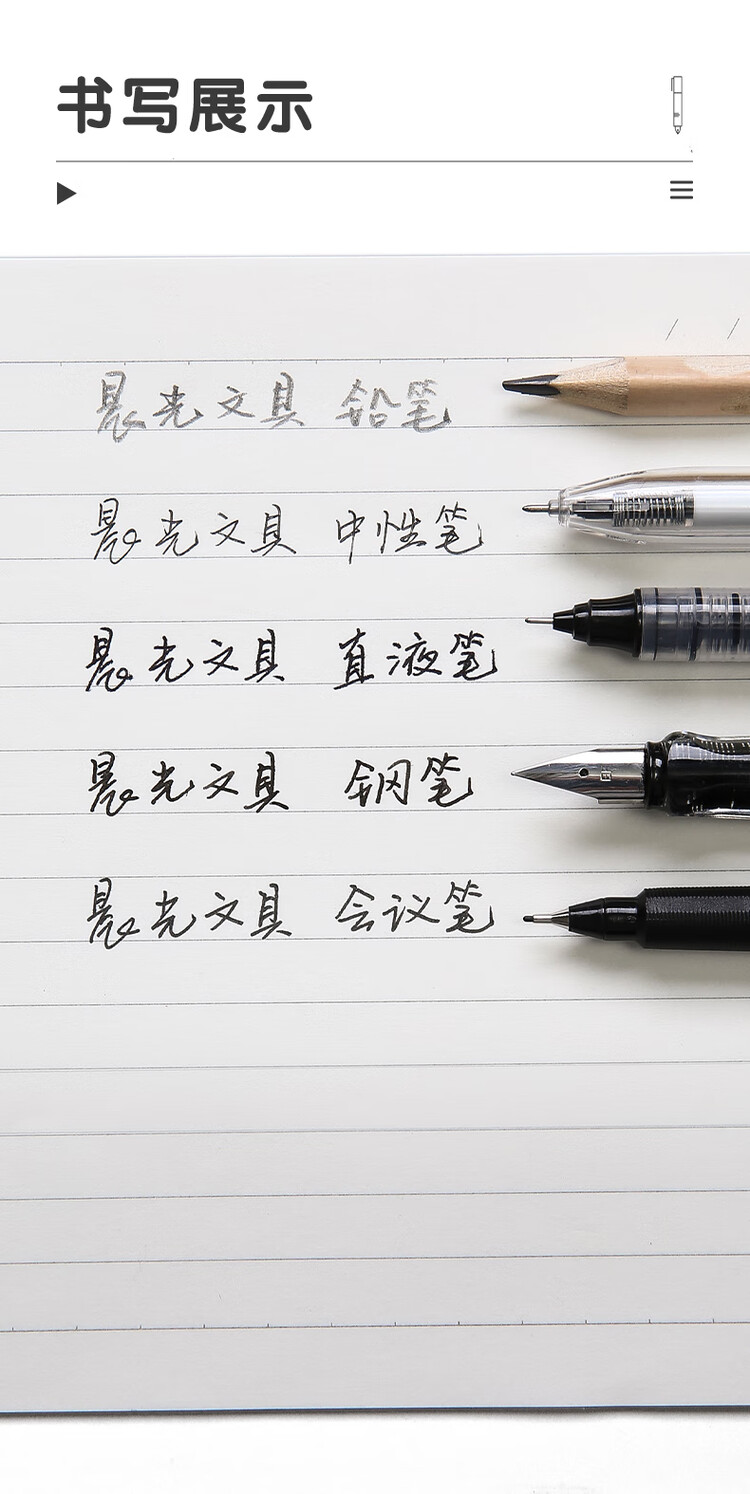 书写展示
晨光文具 铅笔
晨光文具 中性笔
晨光文具 直液笔
晨光文具 钢笔
晨光文具 会议笔